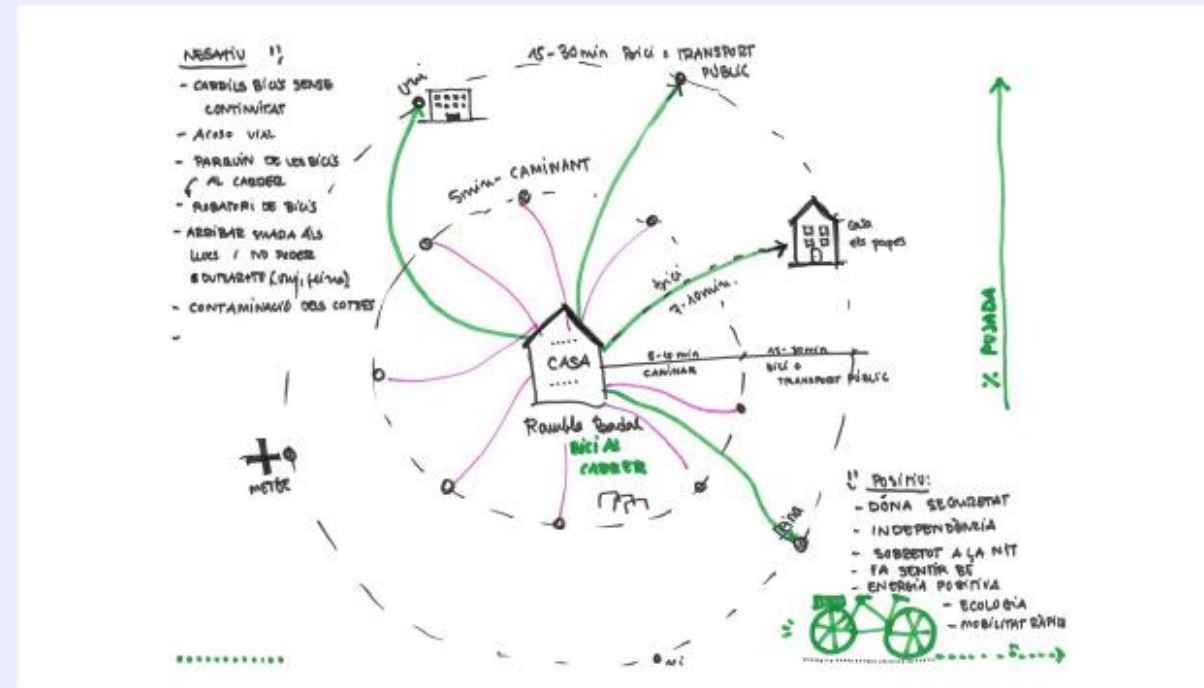 NEGATIU !!
- CARRILS BICIS SENSE
CONTINUITAT
- ACOSO VIAL
- PARQUIN DE LES BICIS
AL CARRER
- ROBATORI DE BICIS
- ARRIBAR SUADA ALS
LLOCS / NO PODER
DUTXARTE (uni, feina)
- CONTAMINACIÓ DELS COTXES
-
15-30 min Bici o TRANSPORT
PÚBLIC
uni
5 min - CAMINANT
casa
els papes
bici
7-10 min.
CASA
5-10 min
CAMINAR
15-30 min
BICI O
TRANSPORT PÚBLIC
% PUJADA
Rambla Badal
BICI AL
CARRER
METGE
!! POSITIU:
- DÓNA SEGURETAT
- INDEPENDÈNCIA
- SOBRETOT A LA NIT
- FA SENTIR BÉ
- ENERGIA POSITIVA
- ECOLOGIA
- MOBILITAT RÀPID